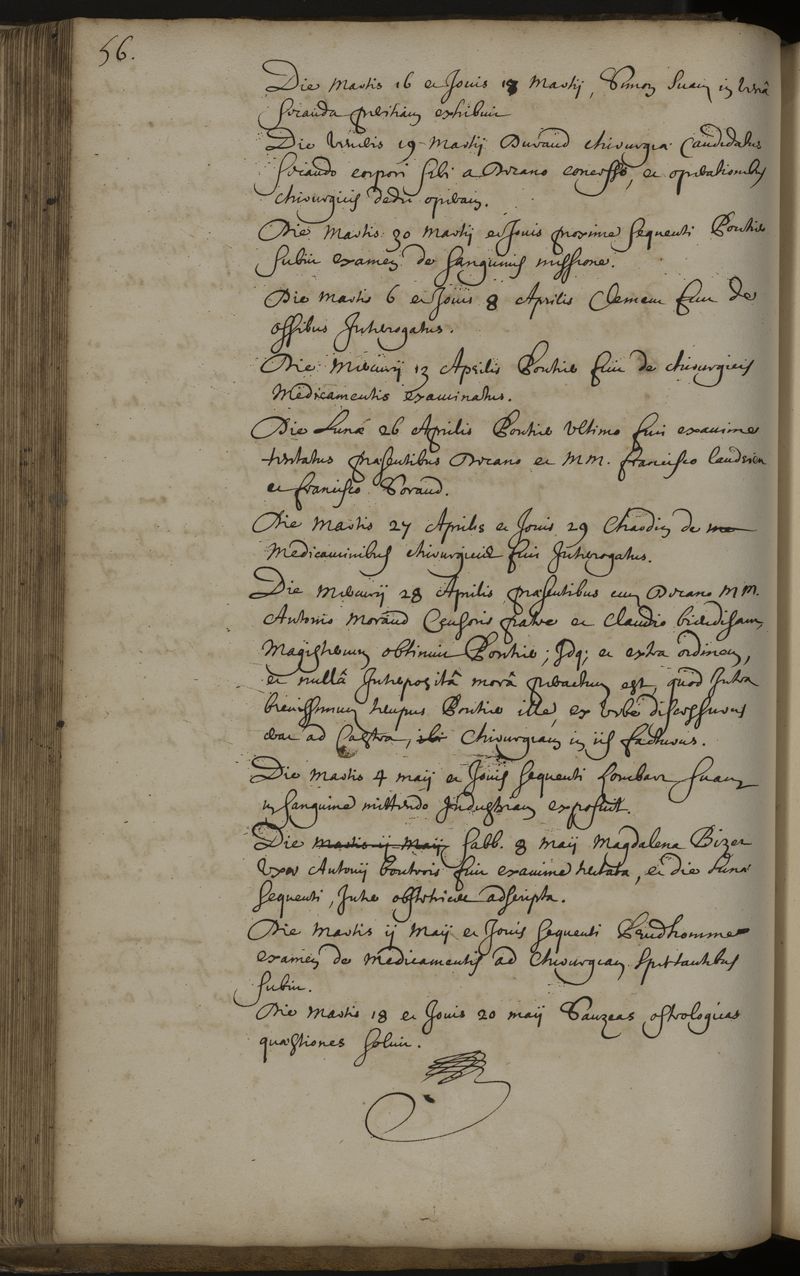 56.
Die Martis 16 et Jovis 18 Martij, Simon suam in vena
secanda peritiam exhibuit
Die Veneris 19 Martij Durand chirurgiæ Candidatus
secando corpori sibi a Decano concesso, et operationibus
chirurgicis dedit operam.
Die Martis 30 Martij et Jovis proxime sequenti Pontier
subiit examen de sanguinis missione.
Die Martis 6 et Jovis 8 Aprilis Clement fuit de
ossibus Interrogatus.
Die Mercurij 13 Aprilis Pontier fuit de chirurgicis
Medicamentis examinatus.
Die Lunæ 26 Aprilis Pontier Ultimo fuit examine
tentatus præsentibus Decano et MM. francisco
et francisco Borand.
Die Martis 27 Aprilis et Jovis 29 Chaodin de me
Medicaminibus chirurgicis fuit Interrogatus.
Die Mercurij 28 Aprilis præsentibus cum Decano MM.
Antonio Morand Censoris fratre et Claudio
Magisterium obtinuit Pontier; Idq; et extra ordinem,
et nullâ Interpositâ morâ peractum est, quod Intra
brevissimum tempus Pontier ille, ex Urbe discessurus
erat ad Castra, ibi Chirurgiam in iis facturus.
Die Martis 4 maij et Jovis sequenti Lombart suam
in sanguine mittendo Industriam exposuit.
Die Martis ij Maij Sabb. 8 maij Magdalena Bizet
Uxor Antonij fuit examine tentata, et die Lunæ
sequenti, Inter obstetrices adscripta.
Die Martis ij Maij et Jovis sequenti Prudhomme
examen de Medicamentis ad Chirurgiam spectantibus
subiit.
Die Martis 18 et Jovis 20 maij Sauzeas ostrologicas
quæstiones solvit.